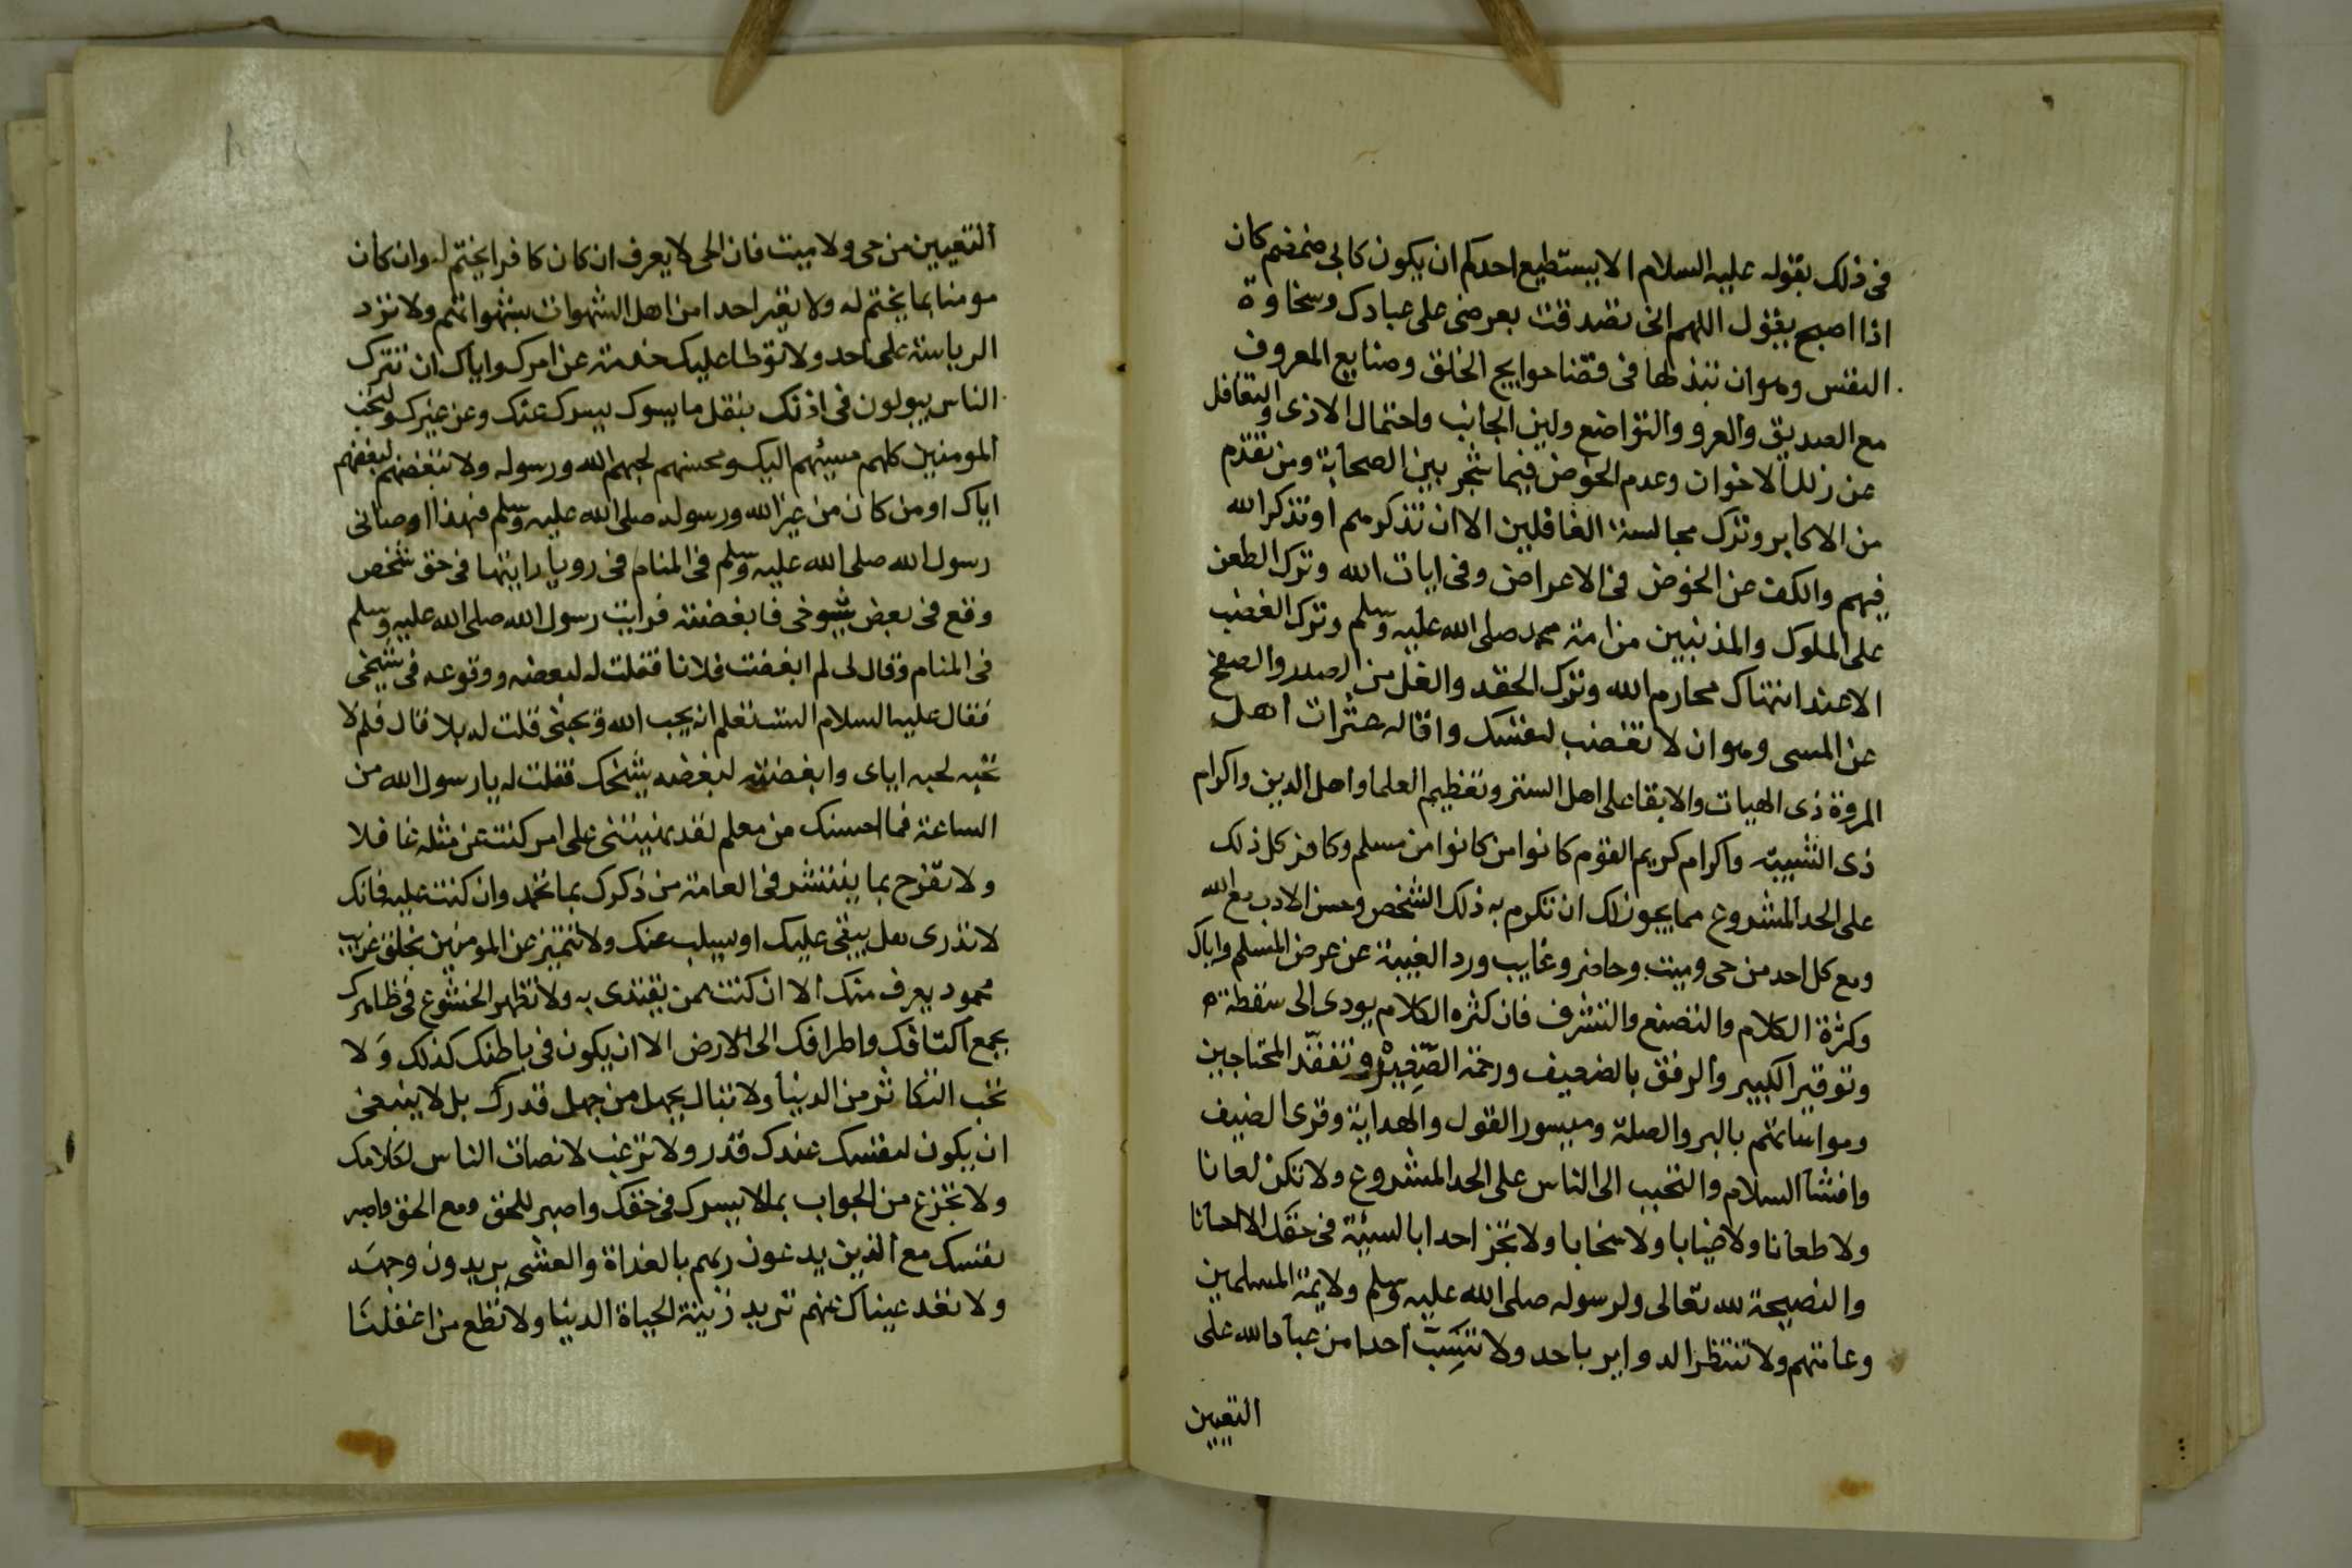 فى ذلك بقوله عليه السلام الا يستطيع احدكم ان يكون كابى ضمضم كان
اذا اصبح يقول اللهم انى تصدقت بعرضى على عبادك وسخاوة
النفس وهو ان تبذلها فى قضا حوايج الخلق وصنايع المعروف
مع الصديق والعدو والتواضع ولين الجانب واحتمال الاذى والتغافل
عن زلل الاخوان وعدم الخوض فيما شجر بين الصحابة ومن تقدم
من الاكابر وترك مجالسة الغافلين الا ان تذكرهم او تذكر الله
فيهم والكف عن الخوض فى الاعراض وفى ايات الله وترك الطعن
على الملوك والمذنبين من امة محمد صلى الله عليه وسلم وترك الغضب
الا عند انتهاك محارم الله وترك الحقد والغل من الصدر والصفح
عن المسى وهو ان لا تغضب لنفسك واقالة عثرات اهل
المروة ذى الهيات والابقا على اهل الستر وتعظيم العلما واهل الدين واكرام
ذى الشيبة واكرام كريم القوم كانوا من كانوا من مسلم وكافر كل ذلك
على الحد المشروع مما يجوز لك ان تكرم به ذلك الشخص وحسن الادب مع الله
ومع كل احد من حى وميت وحاضر وغايب ورد الغيبة عن عرض المسلم واياك
وكثرة الكلام والتصنع والتشرف فان كثره الكلام يودى الى سقطة
وتوقير الكبير والرفق بالضعيف ورحمة الصّغِيرْ وتفقّد المحتاجين
ومواساتهم بالبر والصلة وميسور القول والهداية وقرى الضيف
وافشا السلام والتحبب الى الناس على الحد المشروع ولا تكن لعانا
ولا طعانا ولا ضيابا ولا سخابا ولا تجز احدا بالسيئة فى حقك الا احسانا
والنصيحة لله تعالى ولرسوله صلى الله عليه وسلم ولايمة المسلمين
وعامتهم ولا تنتظر الدواير باحد ولا تسب احدا من عباد الله على
التعيين
التعيين من حى ولا ميت فان الحى لا يعرف ان كان كافرا يختم له وان كان
مومنا بما يختم له ولا تعير احدا من اهل الشهوات بشهواتهم ولا ترد
الرياسة على احد ولا توطا عليك خدمة عن امرك واياك ان تترك
الناس يبولون فى اذنك بنقل ما يسوك يسرك عنك وعن غيرك ولتحب
المومنين كلهم مسيئهم اليك ومحسنهم لحبهم الله ورسوله ولا تبغضهم لبغضهم
اياك او من كان من غير الله ورسوله صلى الله عليه وسلم فبهذا اوصانى
رسول الله صلى الله عليه وسلم فى المنام فى رويا رايتها فى حق شخص
وقع فى بعض شيوخى فابغضته فرايت رسول الله صلى الله عليه وسلم
فى المنام وقال لى لم ابغضت فلانا فقلت له لبغضه ووقوعه فى شيخى
فقال عليه السلام الست تعلم انه يحب الله ويحبنى قلت له بلا قال فلم لا
تحبه لحبه اياى وابغضته لبغضه شيخك فقلت له يا رسول الله من
الساعة فما احسنك من معلم لقد نبهتنى على امر كنت عن مثله غافلا
ولا تفرح بما ينتشر فى العامة من ذكرك بما تحمد وان كنت عليه فانك
لا تدرى هل يبقى عليك او يسلب عنك ولا تتميز عن المومنين بخلق غريب
محمود يعرف منك الا ان كنت ممن يقتدى به ولا تظهر الخشوع فى ظاهرك
بجمع اكتافك واطرافك الى الارض الا ان يكون فى باطنك كذلك وَلا
تحب التكاثر من الدنيا ولا تبال بجهل من جهل قدرك بل لا ينبغى
ان يكون لنفسك عندك قدر ولا ترغب لانصات الناس لكلامك
ولا تجزع من الجواب بما لا يسرك فى حقك واصبر للحق ومع الحق واصبر
نفسك مع الذين يدعون ربهم بالغداة والعشى يريدون وجهه
ولا تعد عيناك عنهم تريد زينة الحياة الدنيا ولا تطع من اغفلنا